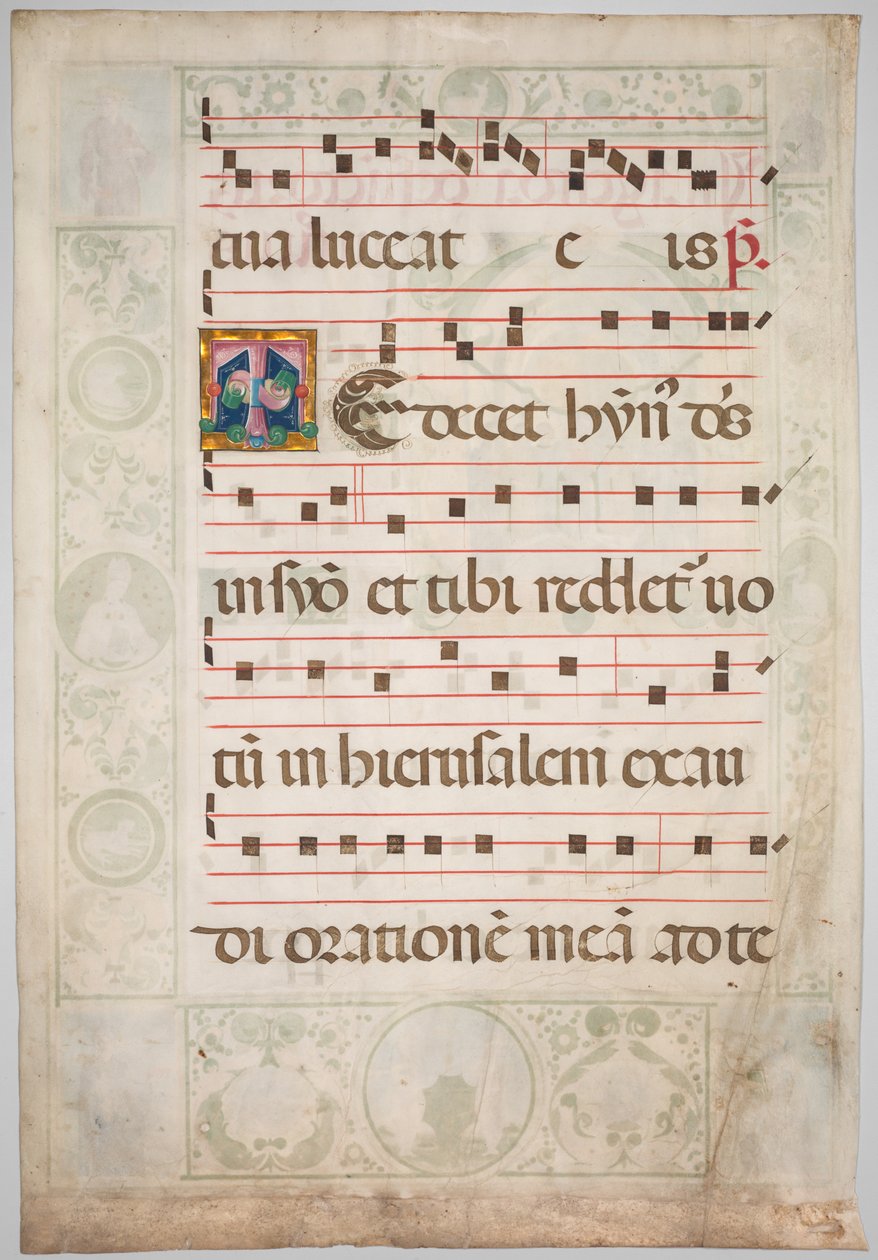 tua luceat e is p̄.
TE decet hȳnꝰ dꝰs
in syō et tibi reddet᷑ uo
tū in hierusalem exau
di orationē meā ad te